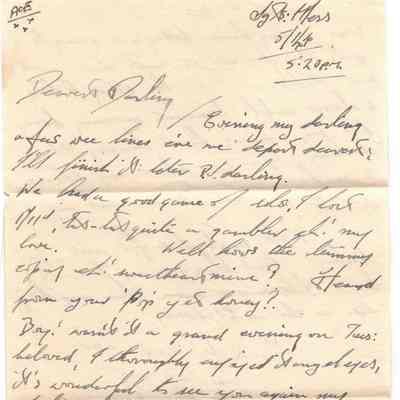 Sgts: Mess
5.20pm.
Dearest Darling
Evening my darling
a few wee lines ere we depart dearest;
I'll finish it later P.S. darling.
We had a good game of I lost
1/11d, tut-tut quite a gambler eh! my
love. Well how's the tummy
coping eh! sweetheart mine? Heard
from your 'Pop' yet honey?
Boy! wasn't it a grand evening on Tues:
beloved, I thoroughly enjoyed it angel eyes,
it's wonderful to see you again my